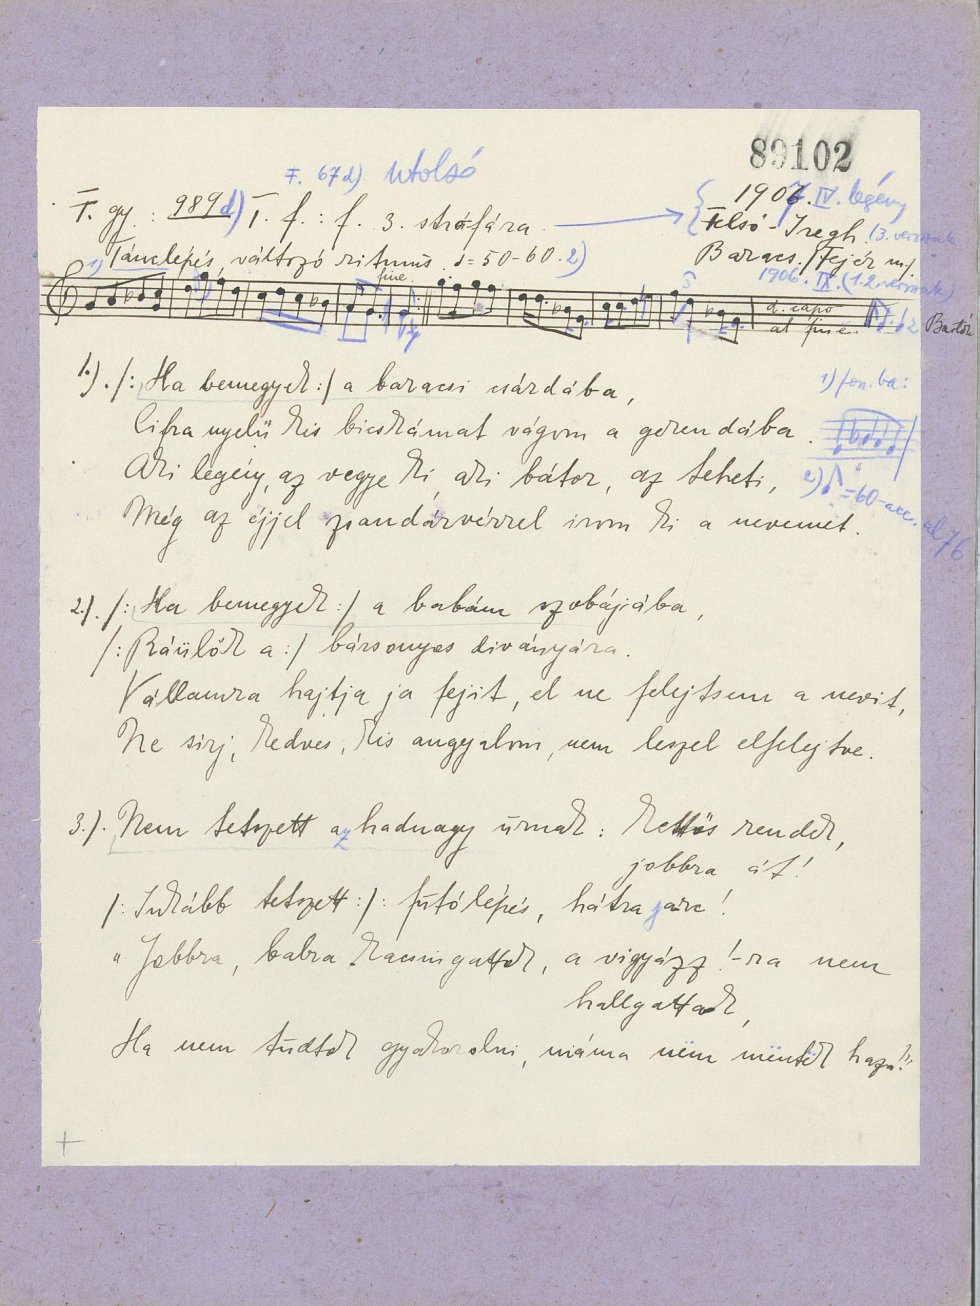 89102
F. 67d) utolsó
1907. IV. legény
T. gy. : 989d) T. f. : f. 3. strófára
Felső-Iregh (3. versszak)
1) Tánclépés, változó ritmus. ♩=50-60. 2)
Baracs. /Fejér m/.
1906. IX. (1. 2. versszak)
fine
d. capo
al fine.
Bartók
1.). /: Ha bemegyek :/ a baracsi csárdába,
1) fon. ba:
Cifra nyelü kis bicskámat vágom a gerendába.
Aki legény, az vegye ki, aki bátor, az teheti,
2) ♪=60-acc. al 76
Még az éjjel zsandárvérrel irom ki a nevemet.
2.). /: Ha bemegyek :/ a babám szobájába,
/: Ráülök a :/ bársonyos diványára.
Vállamra hajtja ja fejit, el ne felejtsem a nevit,
Ne sirj, kedves, kis angyalom, nem leszel elfelejtve.
3.). Nem tetszett az hadnagy úrnak : kettős rendek,
jobbra át!
/: Inkább tetszett :/: futólépés, hátra jarc!
" Jobbra, balra kacsingattok, a vigyázz!-ra nem
hallgattok,
Ha nem tudtok gyakorolni, máma nëm mëntëk haza!"